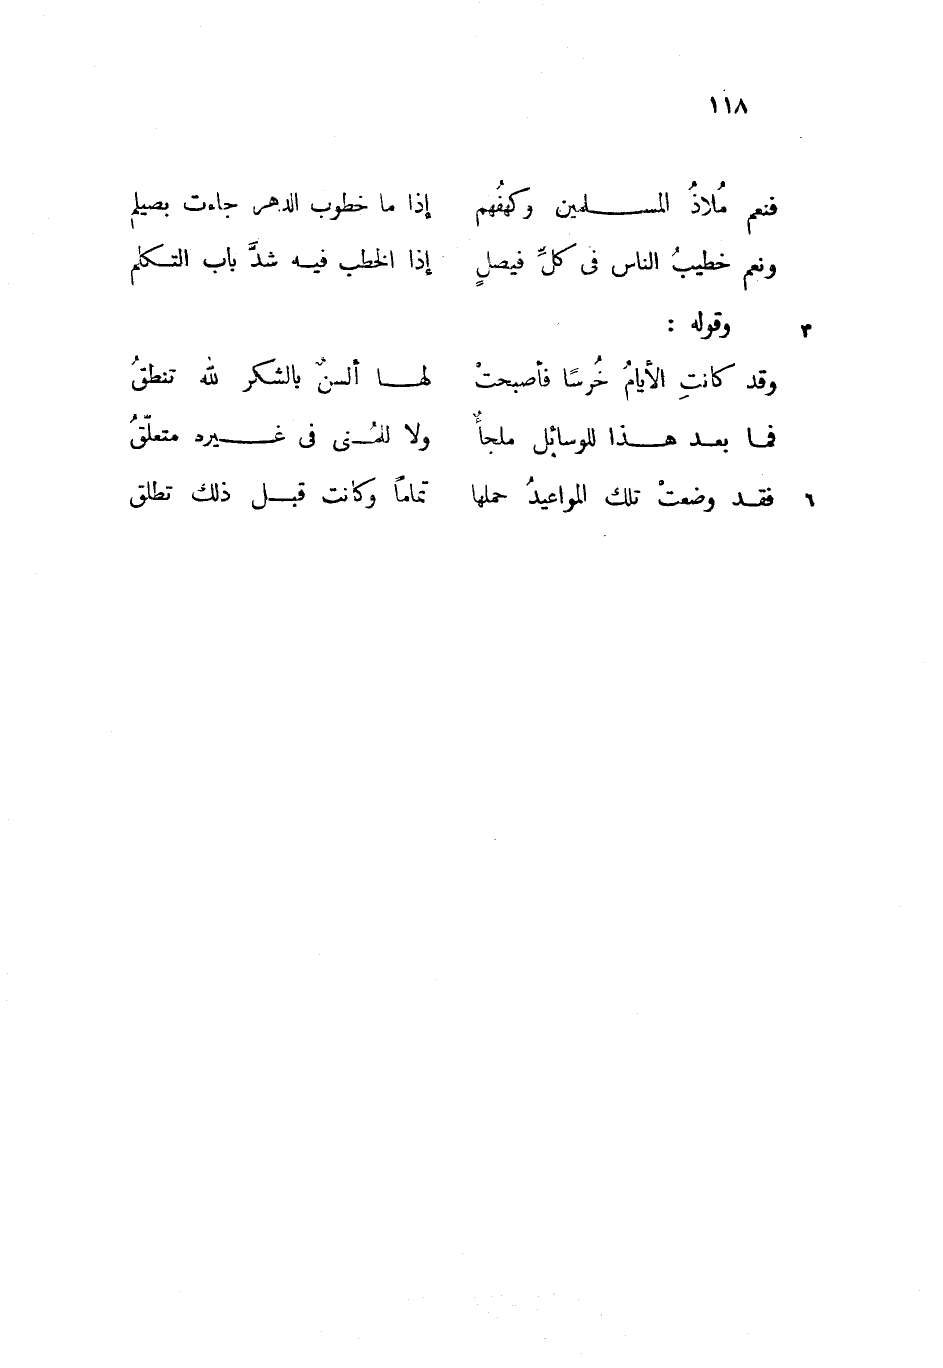 ١١٨
فنعم مُلاذُ المسلمين وكهفُهم إذا ما خطوب الدهر جاءت بصيلم
ونعم خطيبُ الناس فى كلِّ فيصلٍ إذا الخطب فيه شدَّ باب التكلم
٣ وقوله :
وقد كانتِ الأيامُ خُرسًا فأصبحتْ لها ألسنٌ بالشكر لله تنطقُ
فما بعد هذا للوسائل ملجأٌ ولا للمُنى فى غيره متعلّقُ
٦ فقد وضعتْ تلك المواعيدُ حملها تماماً وكانت قبل ذلك تطلق